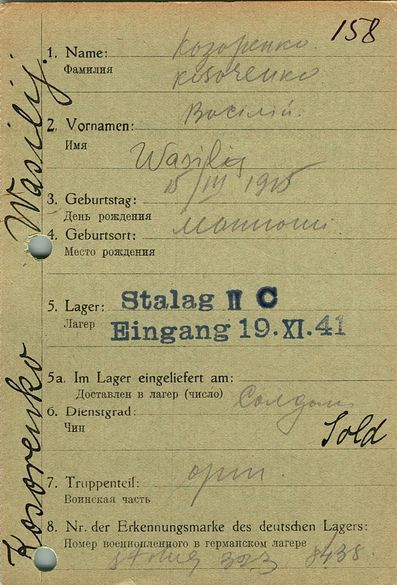 158
1. Name: Козоренко
Фамилия Kosorenko
2. Vornamen: Васілій
Имя Wasilij
3. Geburtstag: 15/III 1915
День рождения
4. Geburtsort:
Место рождения
5. Lager: Stalag II C
Лагерь Eingang 19.XI.41
5a. Im Lager eingeliefert am:
Доставлен в лагерь (число)
6. Dienstgrad: Солдат
Чин Sold
7. Truppenteil:
Воинская часть
8. Nr. der Erkennungsmarke des deutschen Lagers:
Номер военнопленного в германском лагере
8438
Kosorenko Wasilij.